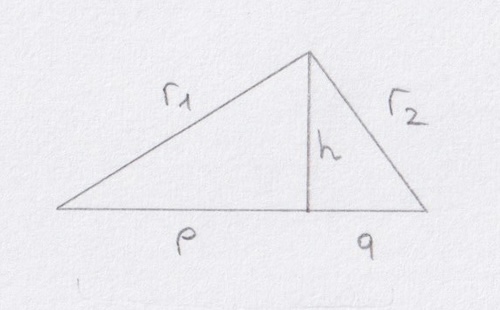 r1
r2
h
p
q